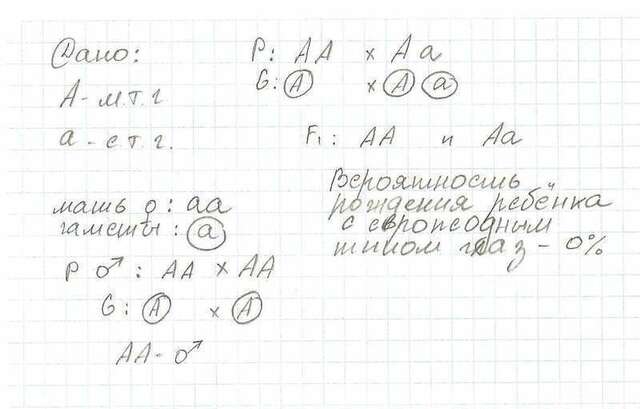 Дано:
А - м.т.г
а - е т. г.
мать ♀: аа
гаметы: а
Р ♂: АА × АА
G: А × А
АА - ♂
Р: АА × Аа
G: А × А а
F₁: АА и Аа
Вероятность
рождения ребёнка
с европеодным
типом глаз - 0%